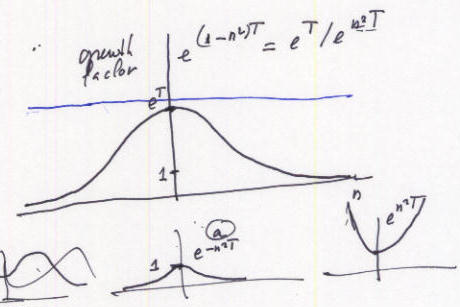 growth factor
e^{(1-n²)T} = e^T / e^{n²T}
e^T
1
n
a
e^{n²T}
1
e^{-n²T}